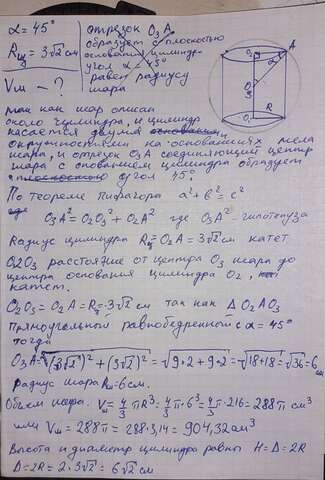 α = 45°
Rц = 3√2 см
Vш - ?
отрезок O₃A
образует с плоскостью
основания цилиндра
угол α = 45°
равен радиусу
шара
O₂
A
α
O₃
O₁
R
так как шар описан
около цилиндра, и цилиндр
касается двумя
окружностями на основаниях тела
шара, и отрезок O₃A соединяющий центр
шара с основанием цилиндра образует
угол 45°.
По теореме Пифагора a² + b² = c²
O₃A² = O₂O₃² + O₂A² где O₃A² - гипотенуза
Радиус цилиндра Rц = O₂A = 3√2 см катет
O₂O₃ расстояние от центра O₃ шара до
центра основания цилиндра O₂,
катет.
O₂O₃ = O₂A = Rц = 3√2 см так как Δ O₂AO₃
прямоугольный равнобедренный с α = 45°
тогда
O₃A = √(3√2)² + (3√2)² = √9·2 + 9·2 = √18+18 = √36 = 6 см
радиус шара Rш = 6 см.
Объем шара. Vш = 4/3 πR³ = 4/3 π·6³ = 4/3 π·216 = 288π см³
или Vш = 288π = 288·3,14 = 904,32 см³
Высота и диаметр цилиндра равны H = D = 2R
D = 2R = 2·3√2 = 6√2 см